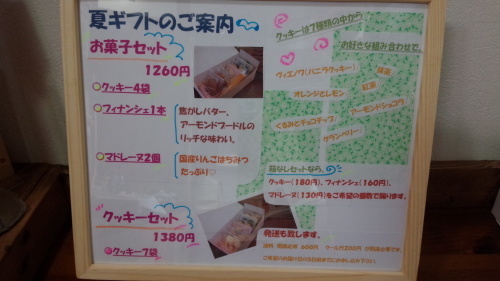 夏ギフトのご案内
お菓子セット
1260円
○クッキー4袋
○フィナンシェ1本
焦がしバター、
アーモンドプードルの
リッチな味わい。
○マドレーヌ2個
国産りんごはちみつ
たっぷり♡
クッキーセット
1380円
○クッキー7袋
クッキーは7種類の中から
お好きな組み合わせで。
ヴィエノワ(バニラクッキー)
抹茶
オレンジとレモン
紅茶
くるみとチョコチップ
アーモンドショコラ
クランベリー
箱なしセットなら、
クッキー(180円)、フィナンシェ(160円)、
マドレーヌ(130円)をご希望の個数で贈ります。
発送も致します。
600円